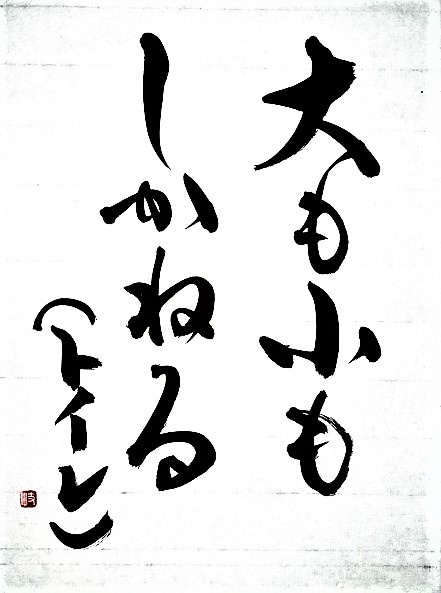 大も小も
しかねる
（トイレ）